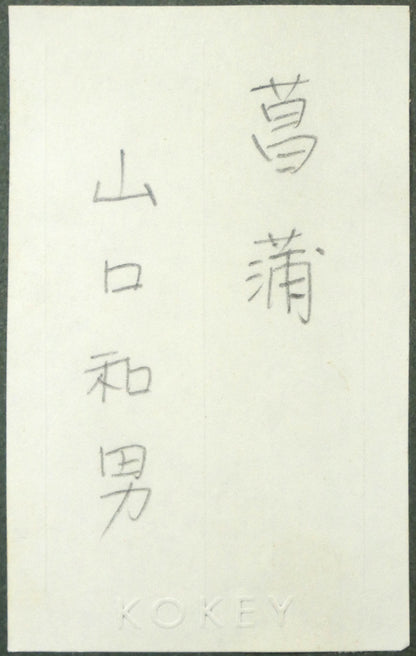 菖蒲
山口和男
KOKEY